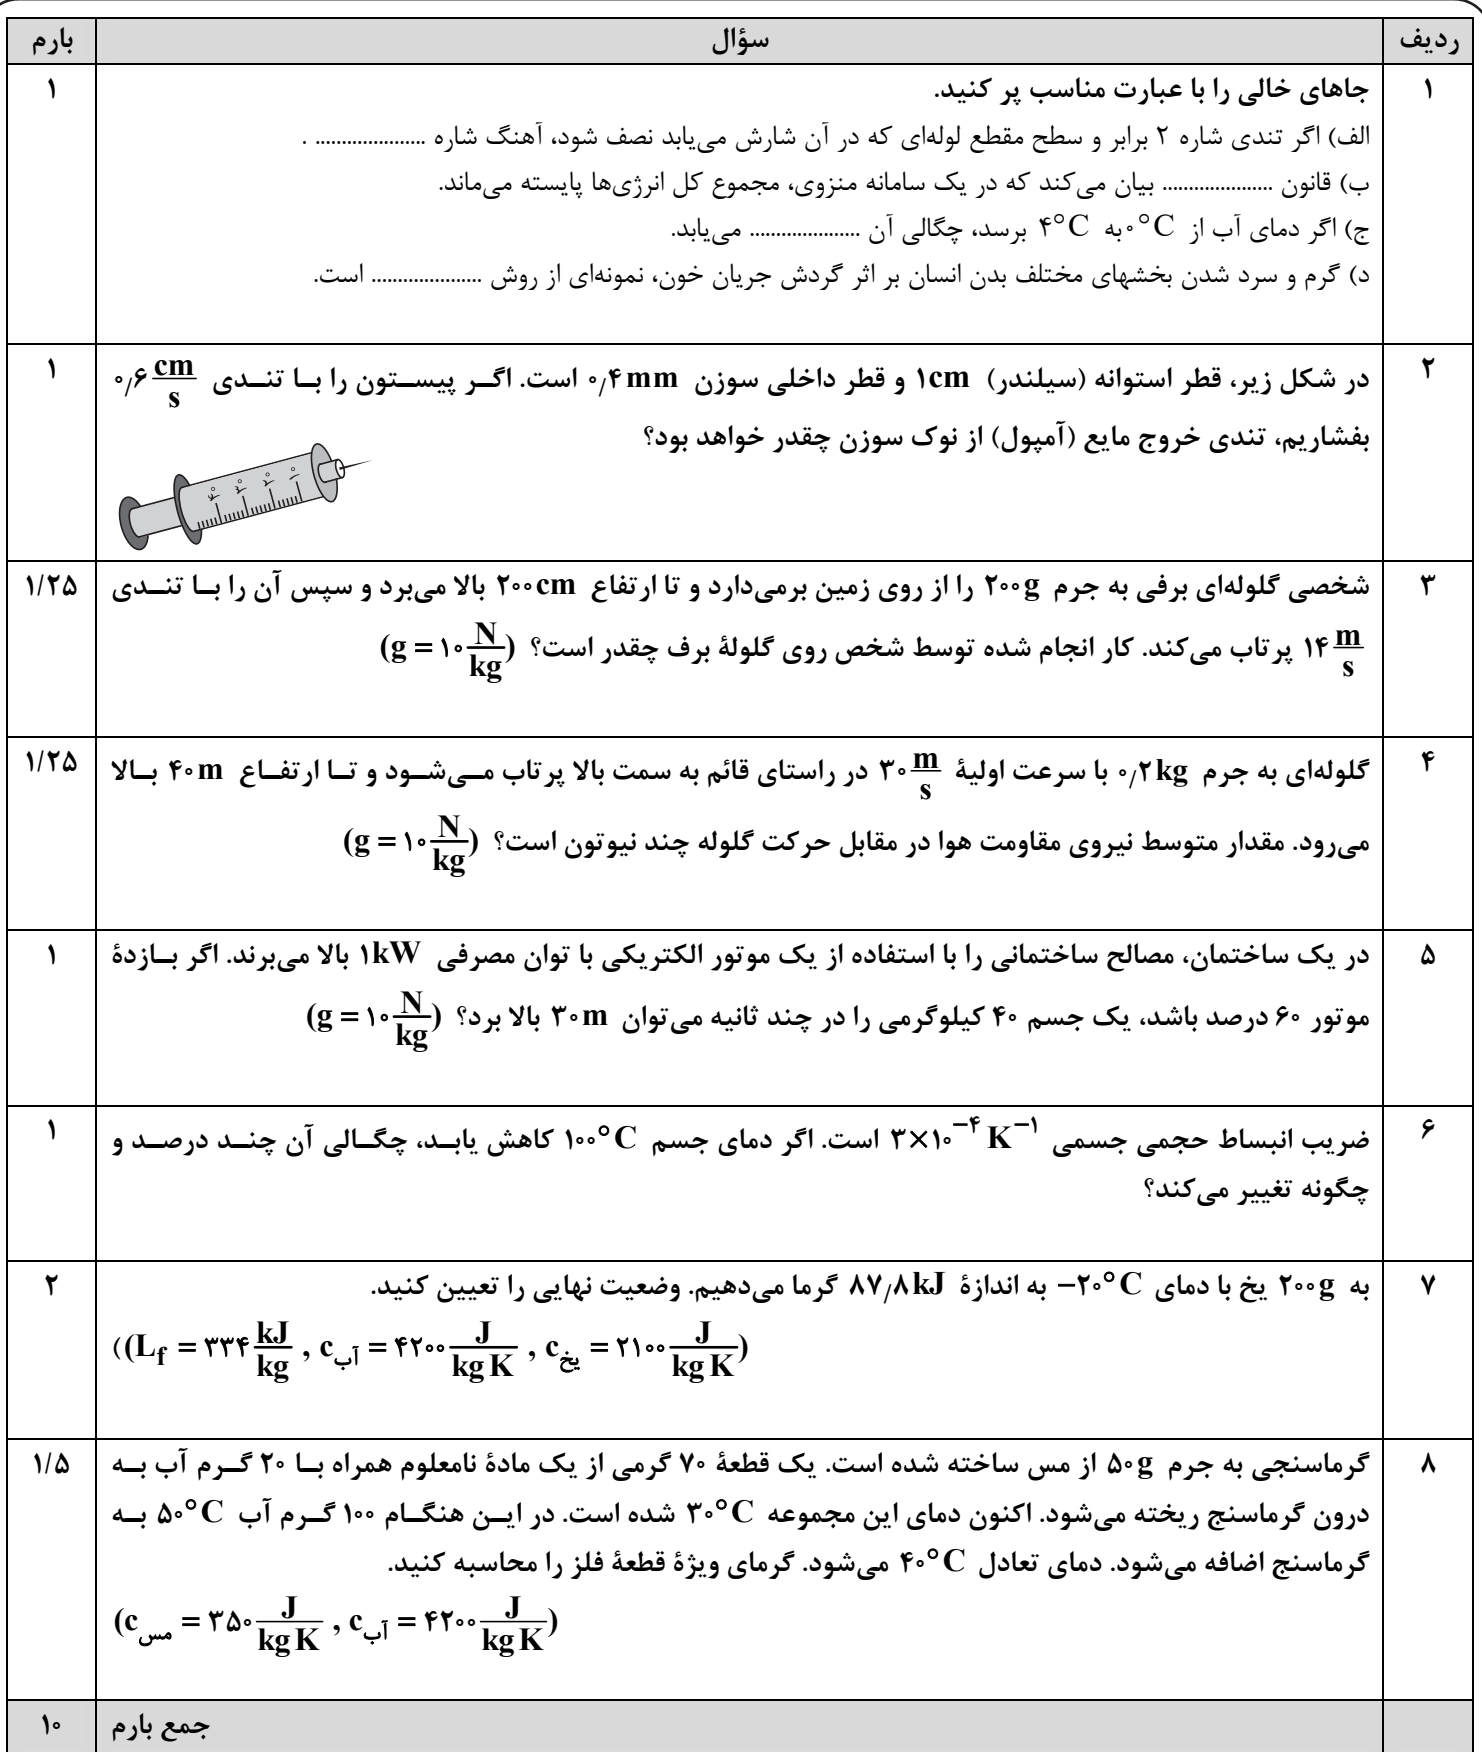 ردیف سؤال بارم
۱ جاهای خالی را با عبارت مناسب پر کنید. ۱
الف) اگر تندی شاره ۲ برابر و سطح مقطع لوله‌ای که در آن شارش می‌یابد نصف شود، آهنگ شاره ..................... .
ب) قانون ..................... بیان می‌کند که در یک سامانه منزوی، مجموع کل انرژی‌ها پایسته می‌ماند.
ج) اگر دمای آب از ۰°C به ۴°C برسد، چگالی آن ..................... می‌یابد.
د) گرم و سرد شدن بخشهای مختلف بدن انسان بر اثر گردش جریان خون، نمونه‌ای از روش ..................... است.
۲ در شکل زیر، قطر استوانه (سیلندر) ۱cm و قطر داخلی سوزن ۰٫۴mm است. اگر پیستون را با تندی ۰٫۶ cm/s ۱
بفشاریم، تندی خروج مایع (آمپول) از نوک سوزن چقدر خواهد بود؟
۴۰ ۳۰ ۲۰ ۱۰
۳ شخصی گلوله‌ای برفی به جرم ۲۰۰g را از روی زمین برمی‌دارد و تا ارتفاع ۲۰۰cm بالا می‌برد و سپس آن را با تندی ۱/۲۵
۱۴ m/s پرتاب می‌کند. کار انجام شده توسط شخص روی گلولهٔ برف چقدر است؟ (g = ۱۰ N/kg)
۴ گلوله‌ای به جرم ۰٫۲kg با سرعت اولیهٔ ۳۰ m/s در راستای قائم به سمت بالا پرتاب می‌شود و تا ارتفاع ۴۰m بالا ۱/۲۵
می‌رود. مقدار متوسط نیروی مقاومت هوا در مقابل حرکت گلوله چند نیوتون است؟ (g = ۱۰ N/kg)
۵ در یک ساختمان، مصالح ساختمانی را با استفاده از یک موتور الکتریکی با توان مصرفی ۱kW بالا می‌برند. اگر بازدهٔ ۱
موتور ۶۰ درصد باشد، یک جسم ۴۰ کیلوگرمی را در چند ثانیه می‌توان ۳۰m بالا برد؟ (g = ۱۰ N/kg)
۶ ضریب انبساط حجمی جسمی ۳×۱۰⁻⁴ K⁻¹ است. اگر دمای جسم ۱۰۰°C کاهش یابد، چگالی آن چند درصد و ۱
چگونه تغییر می‌کند؟
۷ به ۲۰۰g یخ با دمای −۲۰°C به اندازهٔ ۸۷٫۸kJ گرما می‌دهیم. وضعیت نهایی را تعیین کنید. ۲
((L_f = ۳۳۴ kJ/kg , c_آب = ۴۲۰۰ J/kg K , c_یخ = ۲۱۰۰ J/kg K)
۸ گرماسنجی به جرم ۵۰g از مس ساخته شده است. یک قطعهٔ ۷۰ گرمی از یک مادهٔ نامعلوم همراه با ۲۰ گرم آب به ۱/۵
درون گرماسنج ریخته می‌شود. اکنون دمای این مجموعه ۳۰°C شده است. در این هنگام ۱۰۰ گرم آب ۵۰°C به
گرماسنج اضافه می‌شود. دمای تعادل ۴۰°C می‌شود. گرمای ویژهٔ قطعهٔ فلز را محاسبه کنید.
(c_مس = ۳۵۰ J/kg K , c_آب = ۴۲۰۰ J/kg K)
جمع بارم ۱۰